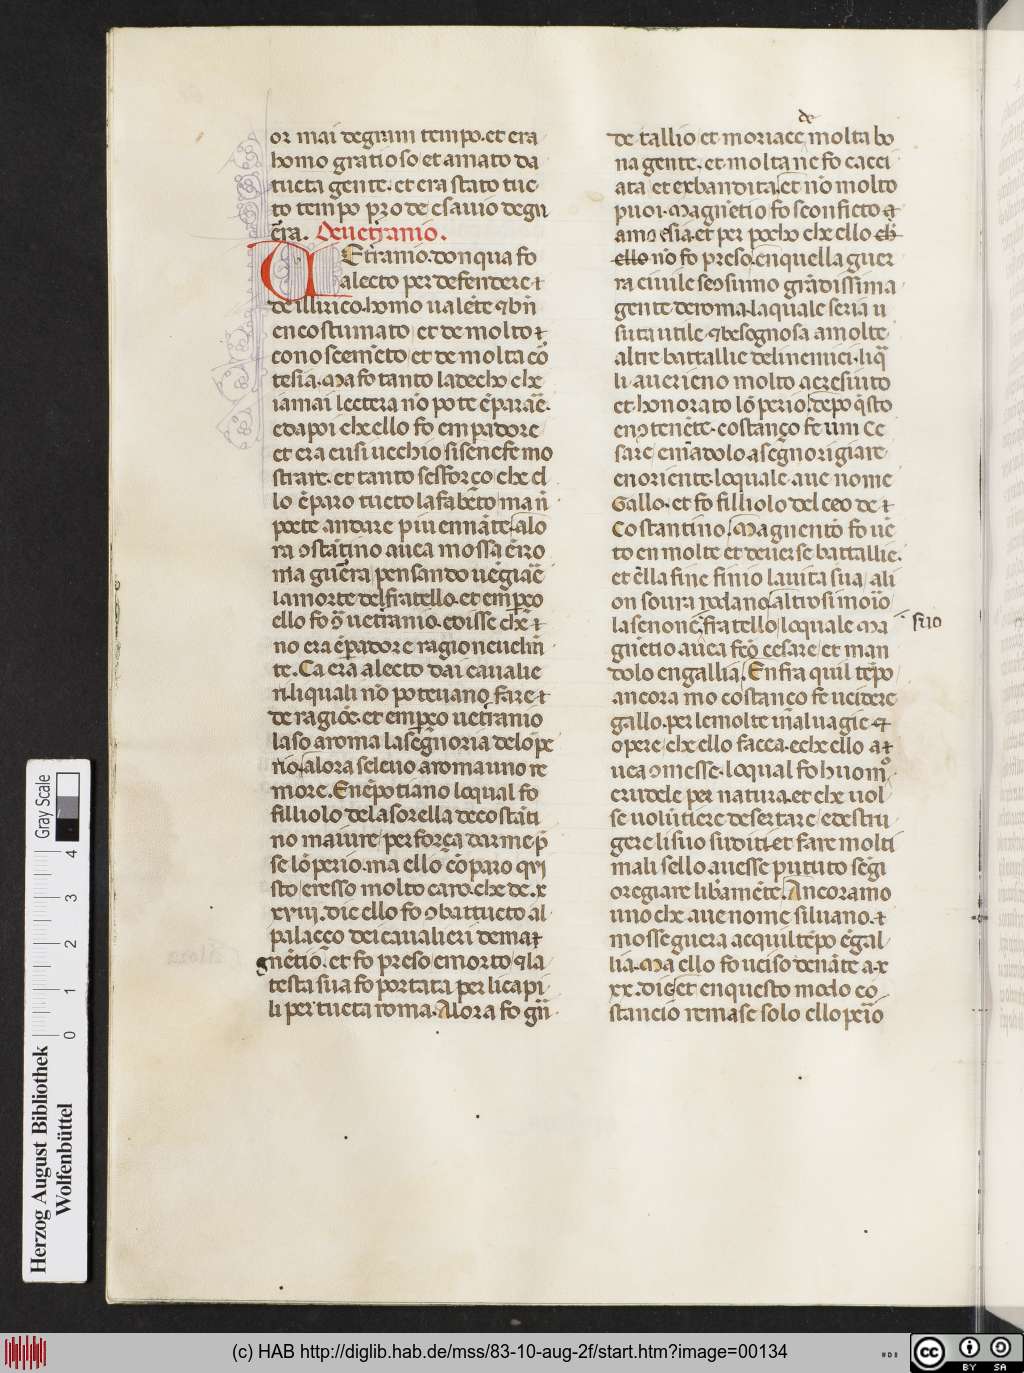 or mai degram tempo. et era
homo gratioso et amato da
tucta gente. et era stato tuc
to tempo pro de e sauio de gu
erra. De uetranio.
VEtranio. donqua fo
alecto per defendere ⁊
de illirico. homo ualēte ⁊ bn̄
encostumato et de molto ⁊
conoscemēto et de molta cō
tesia. Ma fo tanto ladecho che
iamai lectera nō pote ēparare.
edapoi che ello fo empadore
et era cusi uecchio si se ne fe mo
strare. et tanto se sforço che el
lo ēparo tucto la fabēto ma nō
poete andare piu ennāte. alo
ra ꝯstātino auea mossa ērro
ma guerra pensando uēgiare
la morte del fratello. et empço
ello fo ꝯ uetranio. e disse che ⁊
no era ēpadore ragioneuelm̄
te. Ca era alecto dai caualie
ri. li quali nō poteuano fare ⁊
de ragiōe. et empço uetranio
laso a roma la segnoria de lōpe
rio. alora se leuo a roma uno re
more. Enēpotiano lo qual fo
filliolo de la sorella de costāti
no maiure per força darme p̄
se lōperio. ma ello cōparo qui
sto eresso molto caro. che de. x
xviii. die ello fo ꝯbattucto al
palacço dei caualieri de ma⁊
gnētio. et fo preso e morto ⁊ la
testa sua fo portata per li capi
li per tucta roma. Alora fo gn̄
de
de tallio et moriace molta bo
na gente. et molta ne fo cacci
ata et exbandita. et nō molto
puoi. Magnētio fo sconficto ⁊
amoesia. et per pocho che ello ch
ello nō fo preso. en quella guer
ra ciuile se ꝯsumo grādissima
gente de roma. la quale seria u
suta utile ⁊ besegnosa a molte
altre battallie de li nemici. li q̄
li auerieno molto acresciuto
et honorato lōperio. depo q̄sto
enꝯtenēte. costanço fe um ce
sare e mādolo a segnorigiare
en oriente. lo quale aue nome
Gallo. et fo filliolo del ceo de ⁊
Costantino. Magnentio fo uē
to en molte et deuerse battallie.
et ēlla fine finio la uita sua ali
on soura rodano. altrosi morio
la senone. fratello lo quale Ma
suo
gnētio auea fēo cesare et man
dolo en gallia. Enfra quil tēpo
ancora mo costanço fe ucidere
gallo. per le molte malua gie ⁊
opere che ello facea. e che ello a⁊
uea ꝯmesse. lo qual fo huomo
crudele per natura. et che uol
se uolūtiere desertare e destru
gere li suo subditi. et fare molti
mali se llo auesse pututo sēgi
oregiare libamēte. Ancora mo
uno che aue nome siluano. ⁊
mosse guera a cquil tēpo ēgal
lia. Ma ello fo uciso denāte a. x
xx. die. et en questo modo co
stancio remase solo ello perio
Gray Scale
0 1 2 3 4
Herzog August Bibliothek
Wolfenbüttel
(c) HAB http://diglib.hab.de/mss/83-10-aug-2f/start.htm?image=00134
HAB
cc BY SA